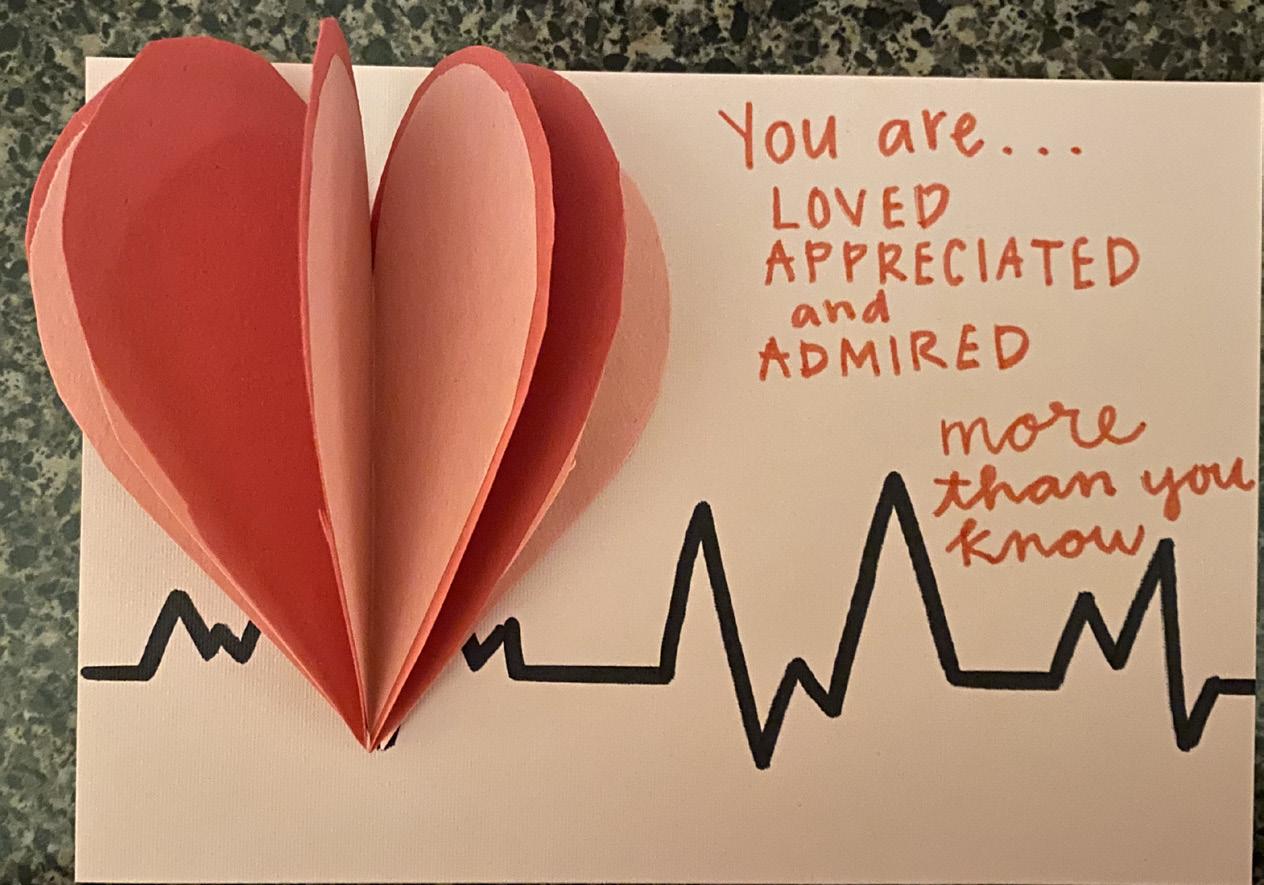 You are...
LOVED
APPRECIATED
and
ADMIRED
more
than you
know